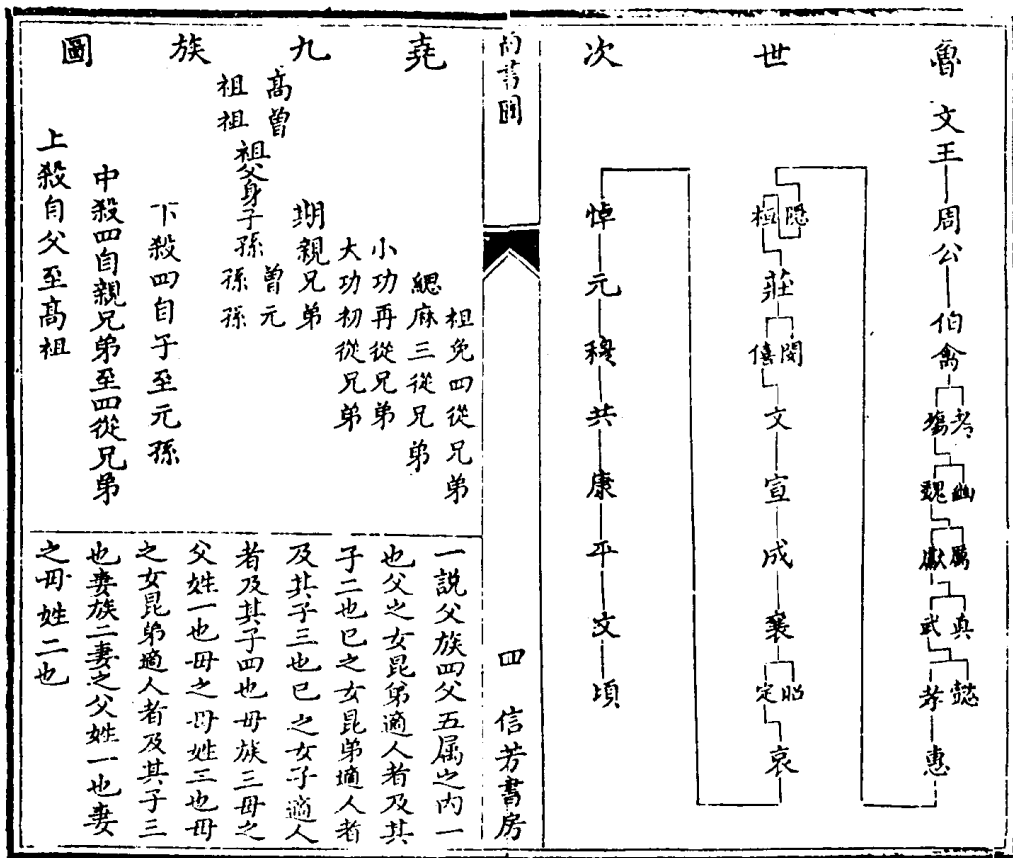 魯世次
文王 周公 伯禽
考 煬
幽 魏
厲 獻
真 武
懿 孝
惠
隱 桓
莊
閔 僖
文 宣 成 襄
昭 定
哀
悼 元 穆 共 康 平 文 頃
尚書圖
四 信芳書房
堯九族圖
袒免四從兄弟
緦麻三從兄弟
小功再從兄弟
大功初從兄弟
期親兄弟
高祖 曾祖 祖 父 身 子 孫 曾孫 元孫
下殺四自子至元孫
中殺四自親兄弟至四從兄弟
上殺自父至高祖
一說父族四父五属之內一
也父之女昆弟適人者及其
子二也已之女昆弟適人者
及其子三也已之女子適人
者及其子四也母族三母之
父姓一也母之母姓二也母
之女昆弟適人者及其子三
也妻族二妻之父姓一也妻
之母姓二也